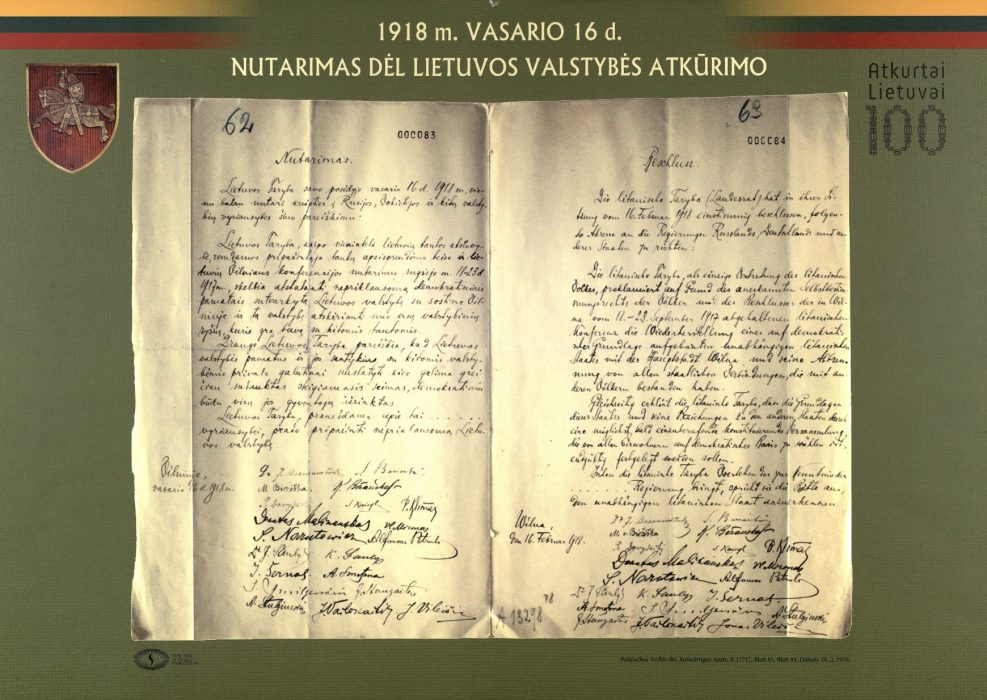 1918 m. VASARIO 16 d.
NUTARIMAS DĖL LIETUVOS VALSTYBĖS ATKŪRIMO
Atkurtai
Lietuvai
100
62
000083
Nutarimas.
Lietuvos Taryba savo posėdyje vasario 16 d. 1918 m. vie-
nu balsu nutarė kreiptis į Rusijos, Vokietijos ir kitų valsty-
bių vyriausybes šiuo pareiškimu:
Lietuvos Taryba, kaipo vienintelė lietuvių tautos atstovy-
bė, remdamos pripažintąja tautų apsisprendimo teise ir lie-
tuvių Vilniaus konferencijos nutarimu rugsėjo m. 18-23 d.
1917 m., skelbia atstatanti nepriklausomą demokratiniais
pamatais sutvarkytą Lietuvos valstybę su sostine Vil-
niuje ir tą valstybę atskirianti nuo visų valstybinių
ryšių, kurie yra buvę su kitomis tautomis.
Drauge Lietuvos Taryba pareiškia, kad Lietuvos
valstybės pamatus ir jos santykius su kitomis valsty-
bėmis privalo galutinai nustatyti kiek galima grei-
čiau sušauktas steigiamasis seimas, demokratiniu
būdu visų jos gyventojų išrinktas.
Lietuvos Taryba, pranešdama apie tai . . . . . .
vyriausybei, prašo pripažinti nepriklausomą Lietu-
vos valstybę.
Vilniuje,
vasario 16 d. 1918 m.
Dr. J. Basanavičius
S. Banaitis
M. Biržiška
K. Bizauskas
P. Dovydaitis
S. Kairys
P. Klimas
Donatas Malinauskas
Vl. Mironas
S. Narutowicz
Alfonsas Petrulis
Dr. J. Šaulys
K. Šaulys
J. Šernas
A. Smetona
J. Smilgevičius
J. Staugaitis
A. Stulginski
J. Vailokaitis
J. Vileišis
63
000084
Beschluss.
Die litauische Taryba (Landesrat) hat in ihrer Si-
tzung vom 16. Februar 1918 einstimmig beschlossen, folgen-
de Adresse an die Regierungen Russlands, Deutschlands und an-
derer Staaten zu richten:
Die litauische Taryba, als einzige Vertretung des litauischen
Volkes, proklamiert auf Grund des anerkannten Selbstbestim-
mungsrechts der Völker und des Beschlusses der in Wil-
na vom 18.-23. September 1917 abgehaltenen litauischen
Konferenz die Wiederherstellung eines auf demokrati-
scher Grundlage aufgebauten unabhängigen litauischen
Staates mit der Hauptstadt Wilna und seine Abtren-
nung von allen staatlichen Verbindungen, die mit an-
deren Völkern bestanden haben.
Gleichzeitig erklärt die litauische Taryba, dass die Grundlagen
dieses Staates und seine Beziehungen zu den anderen Staaten durch
eine möglichst bald einzuberufende konstituierende Versammlung,
die von allen Einwohnern auf demokratischer Basis zu wählen ist,
endgültig festgelegt werden sollen.
Indem die litauische Taryba Vorstehendes zur Kenntnis der
. . . . . . Regierung bringt, spricht sie die Bitte aus,
den unabhängigen litauischen Staat anzuerkennen.
Wilna,
den 16. Februar 1918.
Dr. J. Basanavičius
S. Banaitis
M. v. Biržiška
K. Bizauskas
P. Dovydaitis
S. Kairys
P. Klimas
Donatas Malinauskas
Vl. Mironas
S. Narutowicz
Alfonsas Petrulis
Dr. J. Šaulys
K. Šaulys
J. Šernas
A. Smetona
J. Smilgevičius
A. Stulginski
J. Staugaitis
J. Vailokaitis
Jonas Vileišis
A 13298
18
Politisches Archiv des Auswärtigen Amts, R 21717, Blatt 83, Blatt 84, Datum: 16. 2. 1918.